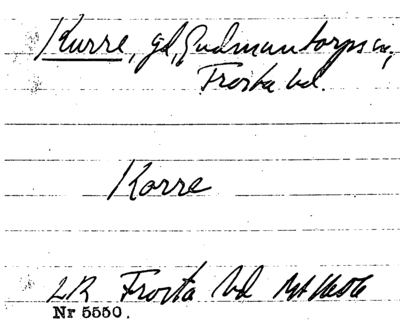 Kurre, gd, Gudmuntorps sn,
Frosta hd.
Korre
LR Frosta hd
Nr 5550.